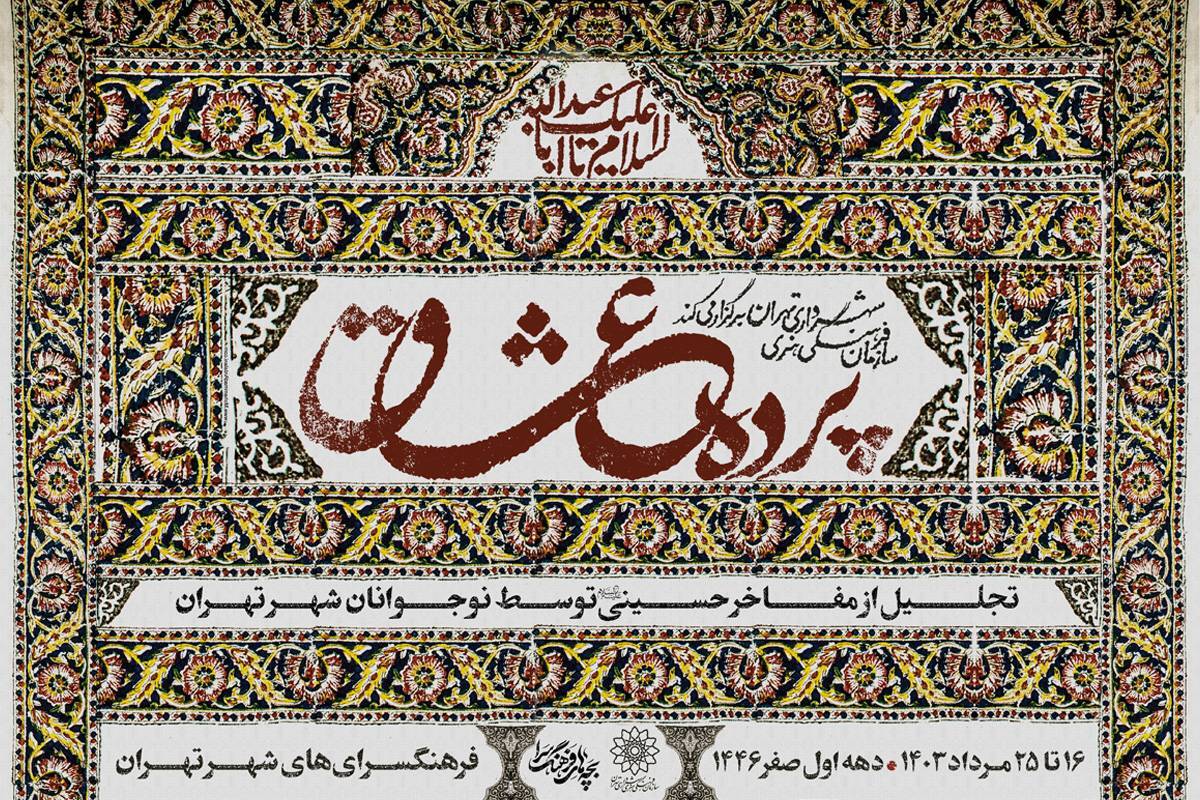 السلام علیک یا اباعبدالله
سازمان فرهنگی هنری شهرداری تهران برگزار می کند
پرده عشاق
تجلیل از مفاخر حسینی توسط نوجوانان شهر تهران
۱۶ تا ۲۵ مرداد ۱۴۰۳ • دهه اول صفر ۱۴۴۶
بچه های فرهنگسرا
فرهنگسرای های شهر تهران